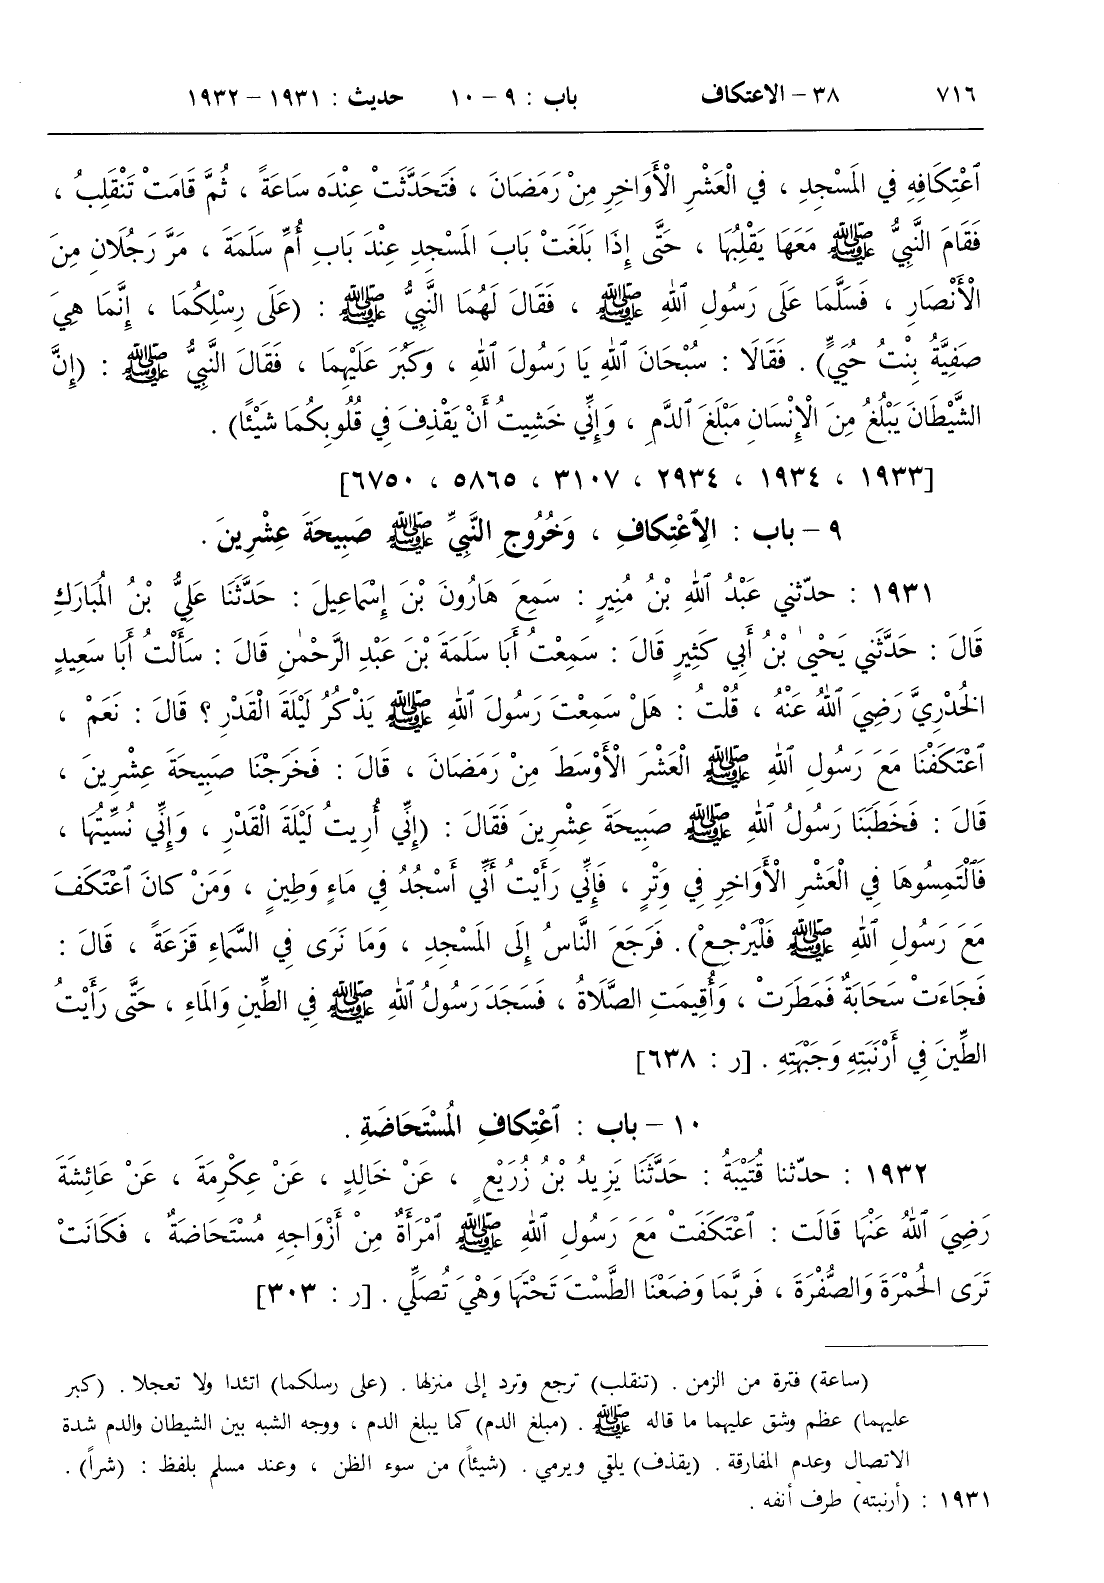 ٧١٦ ٣٨ – الاعتكاف باب : ٩ – ١٠ حديث : ١٩٣١ – ١٩٣٢
ٱعْتِكَافِهِ فِي المَسْجِدِ ، فِي الْعَشْرِ الْأَوَاخِرِ مِنْ رَمَضَانَ ، فَتَحَدَّثَتْ عِنْدَه سَاعَةً ، ثُمَّ قَامَتْ تَنْقَلِبُ ،
فَقَامَ النَّبِيُّ ﷺ مَعَهَا يَقْلِبُهَا ، حَتَّى إِذَا بَلَغَتْ بَابَ المَسْجِدِ عِنْدَ بَابِ أُمِّ سَلَمَةَ ، مَرَّ رَجُلَانِ مِنَ
الْأَنْصَارِ ، فَسَلَّمَا عَلَى رَسُولِ ٱللهِ ﷺ ، فَقَالَ لَهُمَا النَّبِيُّ ﷺ : (عَلَى رِسْلِكُمَا ، إِنَّمَا هِيَ
صَفِيَّةُ بِنْتُ حُيَيٍّ) . فَقَالَا : سُبْحَانَ ٱللهِ يَا رَسُولَ ٱللهِ ، وَكَبُرَ عَلَيْهِمَا ، فَقَالَ النَّبِيُّ ﷺ : (إِنَّ
الشَّيْطَانَ يَبْلُغُ مِنَ الْإِنْسَانِ مَبْلَغَ ٱلدَّمِ ، وَإِنِّي خَشِيتُ أَنْ يَقْذِفَ فِي قُلُوبِكُمَا شَيْئًا) .
[١٩٣٣ ، ١٩٣٤ ، ٢٩٣٤ ، ٣١٠٧ ، ٥٨٦٥ ، ٦٧٥٠]
٩ – باب : الِٱعْتِكافِ ، وَخُرُوجِ النَّبِيِّ ﷺ صَبِيحَةَ عِشْرِينَ .
١٩٣١ : حدّثني عَبْدُ ٱللهِ بْنُ مُنِيرٍ : سَمِعَ هَارُونَ بْنَ إِسْمَاعِيلَ : حَدَّثَنَا عَلِيُّ بْنُ الْمُبَارَكِ
قَالَ : حَدَّثَنِي يَحْيىٰ بْنُ أَبِي كَثِيرٍ قَالَ : سَمِعْتُ أَبَا سَلَمَةَ بْنَ عَبْدِ الرَّحْمٰنِ قَالَ : سَأَلْتُ أَبَا سَعِيدٍ
الخُدْرِيَّ رَضِيَ ٱللهُ عَنْهُ ، قُلْتُ : هَلْ سَمِعْتَ رَسُولَ ٱللهِ ﷺ يَذْكُرُ لَيْلَةَ الْقَدْرِ ؟ قَالَ : نَعَمْ ،
ٱعْتَكَفْنَا مَعَ رَسُولِ ٱللهِ ﷺ الْعَشْرَ الْأَوْسَطَ مِنْ رَمَضَانَ ، قَالَ : فَخَرَجْنَا صَبِيحَةَ عِشْرِينَ ،
قَالَ : فَخَطَبَنَا رَسُولُ ٱللهِ ﷺ صَبِيحَةَ عِشْرِينَ فَقَالَ : (إِنِّي أُرِيتُ لَيْلَةَ الْقَدْرِ ، وَإِنِّي نُسِّيتُهَا ،
فَٱلْتَمِسُوهَا فِي الْعَشْرِ الْأَوَاخِرِ فِي وَتْرٍ ، فَإِنِّي رَأَيْتُ أَنِّي أَسْجُدُ فِي مَاءٍ وَطِينٍ ، وَمَنْ كانَ ٱعْتَكَفَ
مَعَ رَسُولِ ٱللهِ ﷺ فَلْيَرْجِعْ) . فَرَجَعَ النَّاسُ إِلَى المَسْجِدِ ، وَمَا نَرَى فِي السَّمَاءِ قَزَعَةً ، قَالَ :
فَجَاءَتْ سَحَابَةٌ فَمَطَرَتْ ، وَأُقِيمَتِ الصَّلَاةُ ، فَسَجَدَ رَسُولُ ٱللهِ ﷺ فِي الطِّينِ وَالمَاءِ ، حَتَّى رَأَيْتُ
الطِّينَ فِي أَرْنَبَتِهِ وَجَبْهَتِهِ . [ر : ٦٣٨]
١٠ – باب : ٱعْتِكافِ الْمُسْتَحَاضَةِ .
١٩٣٢ : حدّثنا قُتَيْبَةُ : حَدَّثَنَا يَزِيدُ بْنُ زُرَيْعٍ ، عَنْ خَالِدٍ ، عَنْ عِكْرِمَةَ ، عَنْ عَائِشَةَ
رَضِيَ ٱللهُ عَنْهَا قَالَتْ : ٱعْتَكَفَتْ مَعَ رَسُولِ ٱللهِ ﷺ ٱمْرَأَةٌ مِنْ أَزْوَاجِهِ مُسْتَحَاضَةٌ ، فَكَانَتْ
تَرَى الحُمْرَةَ وَالصُّفْرَةَ ، فَرُبَّمَا وَضَعْنَا الطَّسْتَ تَحْتَهَا وَهْيَ تُصَلِّي . [ر : ٣٠٣]
(ساعة) فترة من الزمن . (تنقلب) ترجع وترد إلى منزلها . (على رسلكما) اتئدا ولا تعجلا . (كبر
عليهما) عظم وشق عليهما ما قاله ﷺ . (مبلغ الدم) كما يبلغ الدم ، ووجه الشبه بين الشيطان والدم شدة
الاتصال وعدم المفارقة . (يقذف) يلقي ويرمي . (شيئاً) من سوء الظن ، وعند مسلم بلفظ : (شراً) .
١٩٣١ : (أرنبته) طرف أنفه .